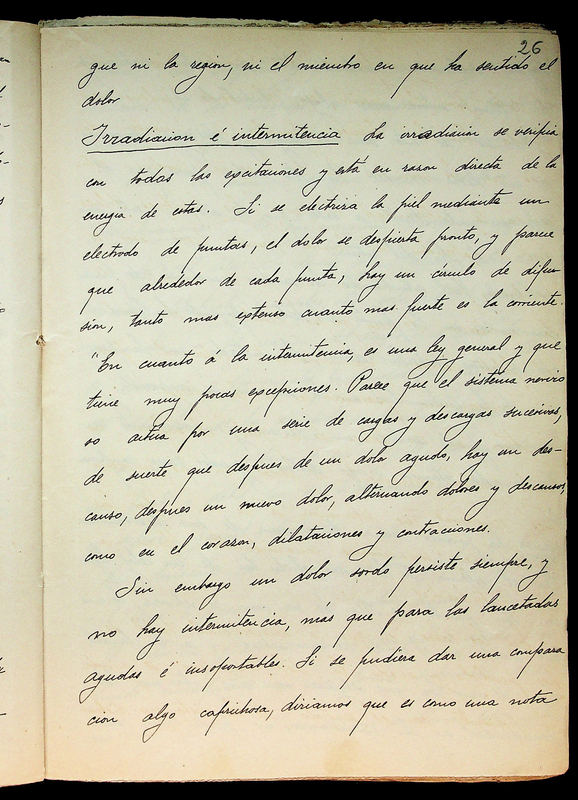 26
que ni la region, ni el miembro en que ha sentido el
dolor
Irradiacion é intermitencia La irradiacion se verifica
con todas las excitaciones y está en razon directa de la
energia de estas. Si se electriza la piel mediante un
electrodo de puntas, el dolor se despierta pronto, y parece
que alrededor de cada punta, hay un círculo de difu-
sion, tanto mas extenso cuanto mas fuerte es la corriente.
"En cuanto á la intermitencia, es una ley general y que
tiene muy pocas excepciones. Parece que el sistema nervio
so actúa por una serie de cargas y descargas sucesivas,
de suerte que despues de un dolor agudo, hay un des-
canso, despues un nuevo dolor, alternando dolores y descansos,
como en el corazon, dilataciones y contracciones.
Sin embargo un dolor sordo persiste siempre, y
no hay intermitencia, más que para las lancetadas
agudas é insoportables. Si se pudiera dar una compara
cion algo caprichosa, diriamos que es como una nota